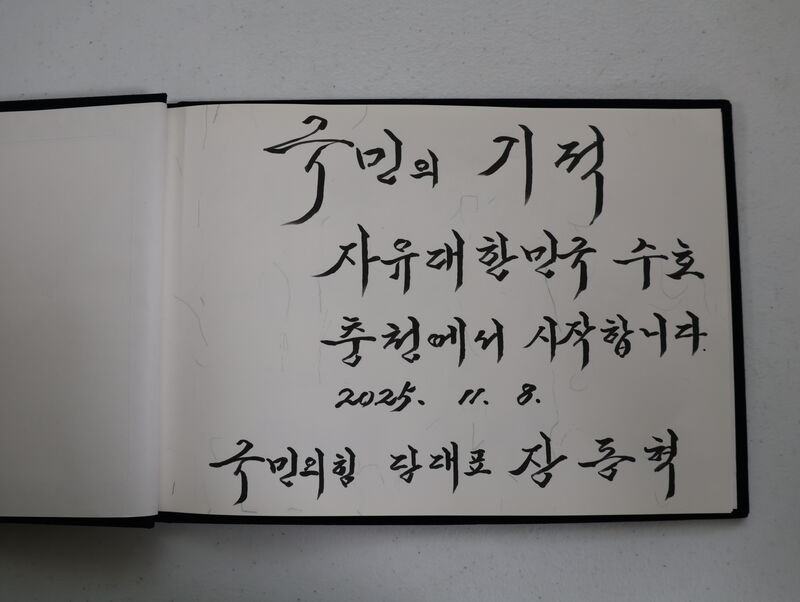 국민의 기적
자유대한민국 수호
충청에서 시작합니다.
2025. 11. 8.
국민의힘 당대표 장동혁